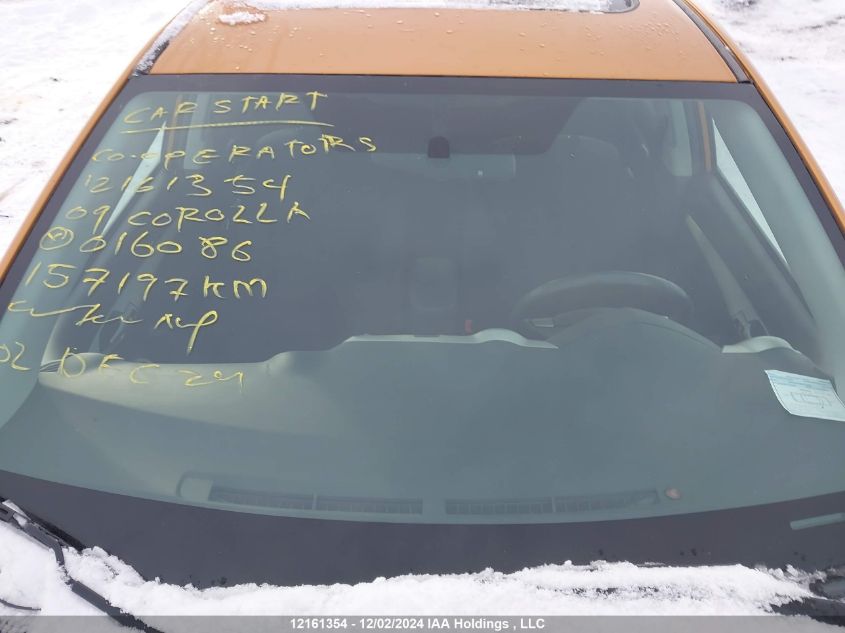 CAR START
CO-OPERATORS
12161354
09 COROLLA
Y 016086
157197 KM
02 DEC 24
12161354 - 12/02/2024 IAA Holdings , LLC